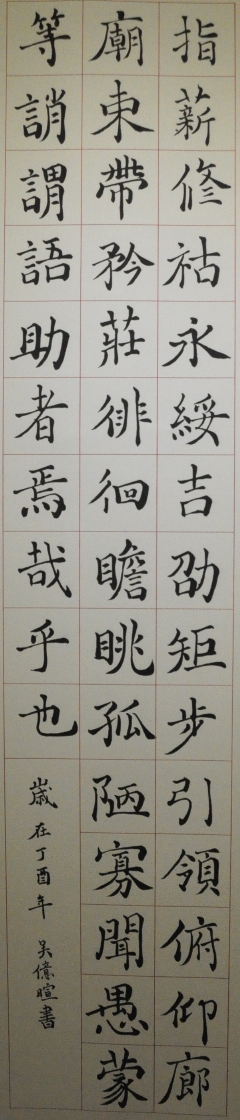 指薪修祜永綏吉劭矩步引領俯仰廊
廟束帶矜莊徘徊瞻眺孤陋寡聞愚蒙
等誚謂語助者焉哉乎也
歲在丁酉年 吴億暄書